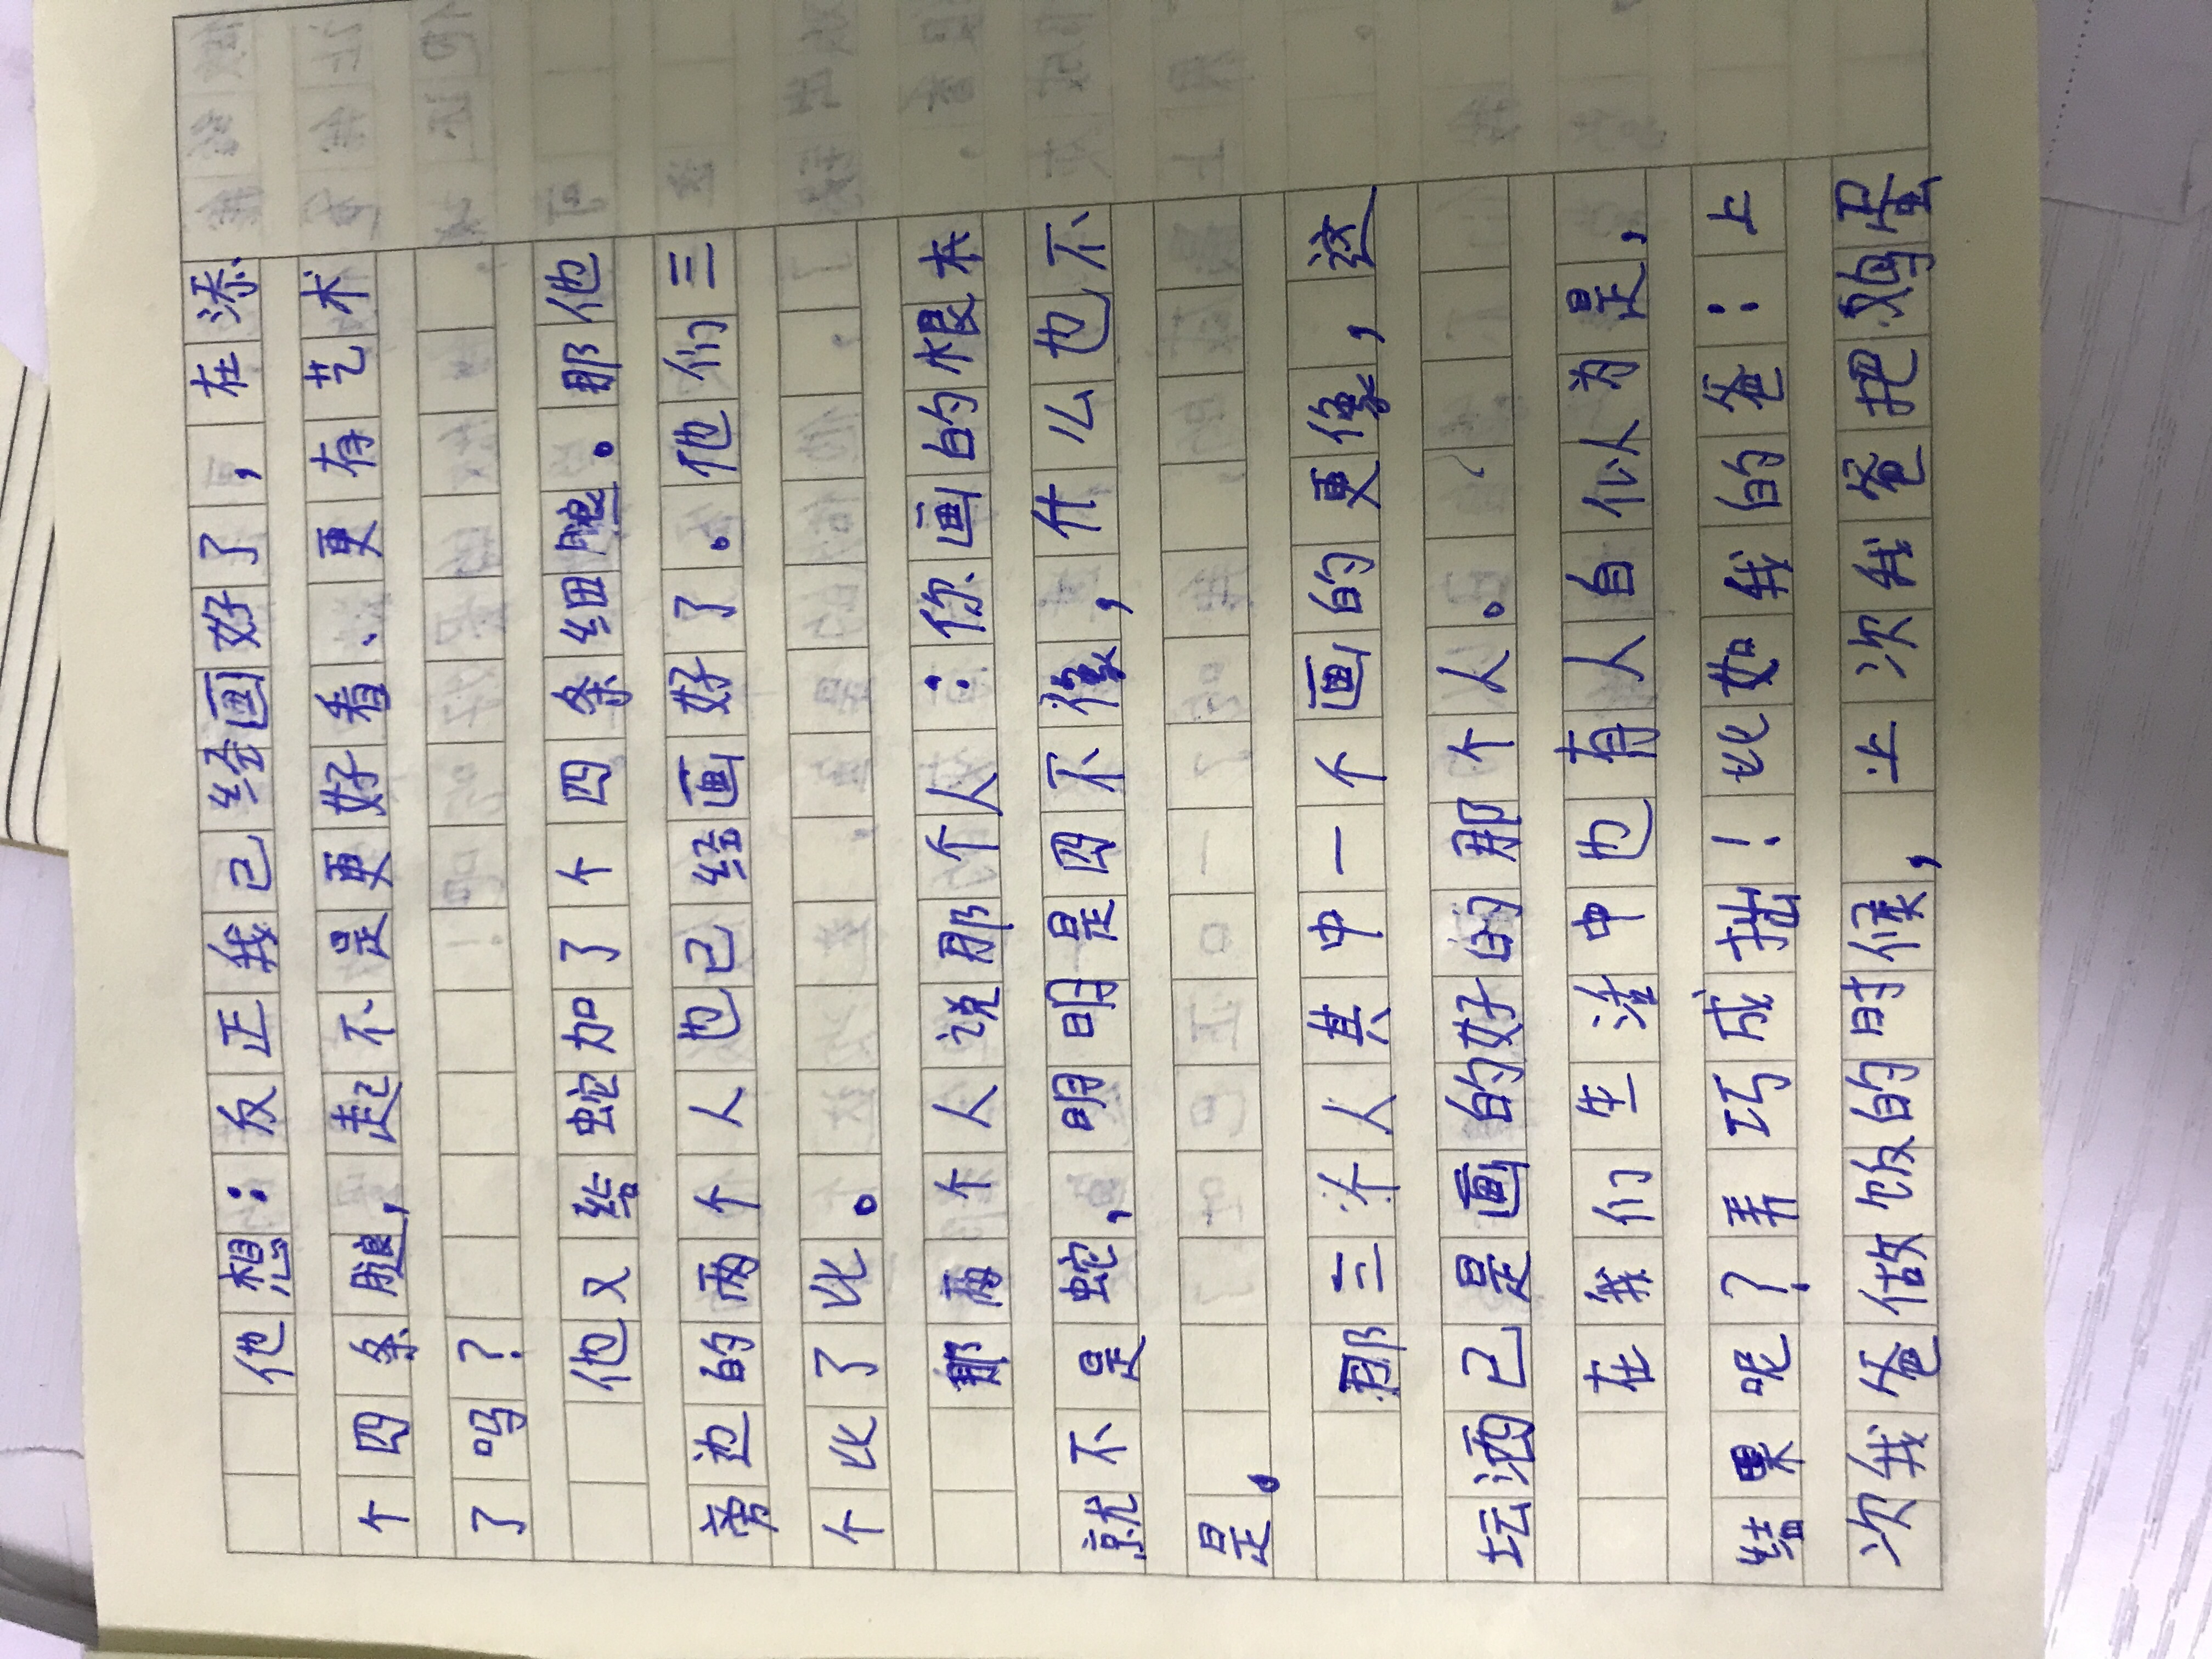 他想：反正我己经画好了，在添
个四条腿，起不是更好看、更有艺术
了吗？
他又给蛇加了个四条细腿。那他
旁边的两个人也己经画好了。他们三
个比了比。
那两个人说那个人：你画的根本
就不是蛇，明明是四不像，什么也不
是。
那三个人其中一个画的更像，这
坛酒己是画的好的那个人。
在我们生活中也有人自似为是，
结果呢？弄巧成拙！比如我的爸：上
次我爸做饭的时候，上次我爸把鸡蛋